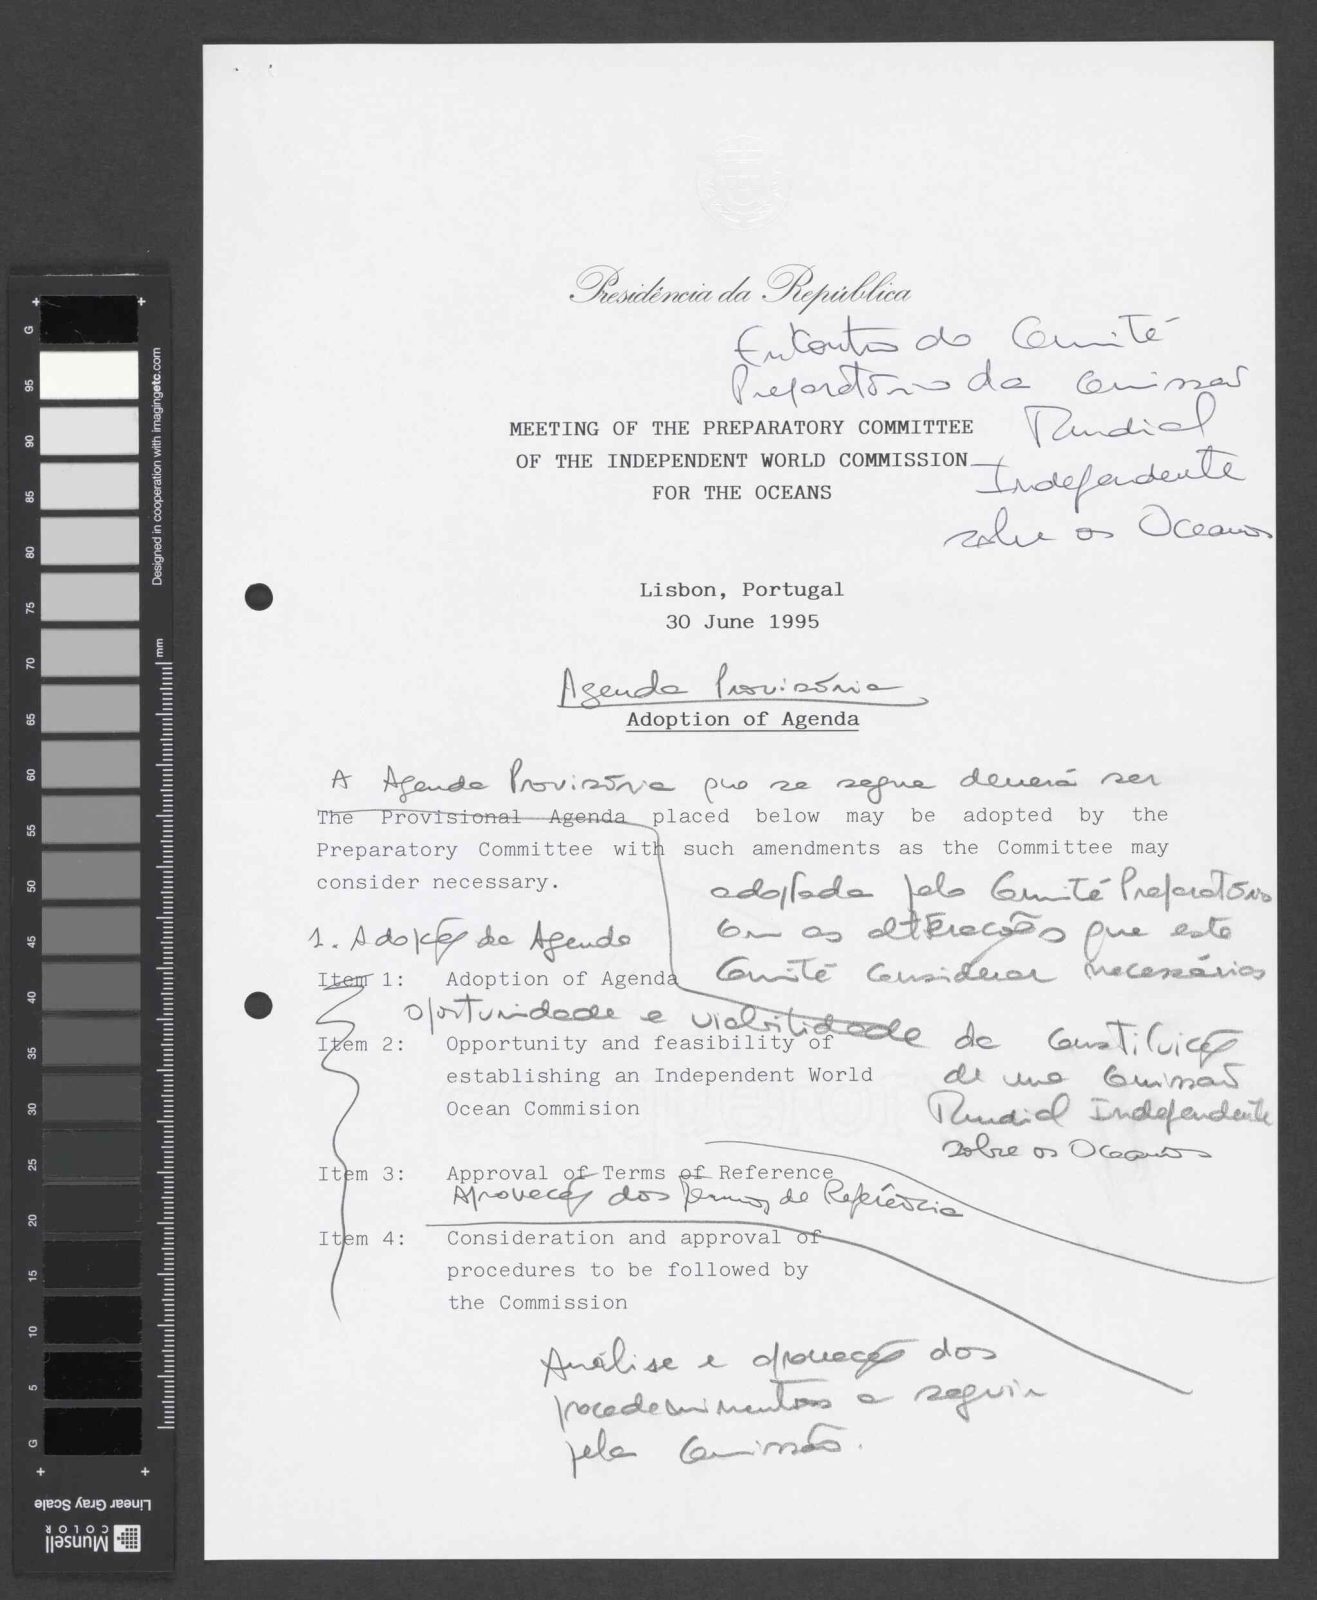 Presidência da República
Encontro do Comité
Preparatório da Comissão
MEETING OF THE PREPARATORY COMMITTEE
Mundial
OF THE INDEPENDENT WORLD COMMISSION
Independente
FOR THE OCEANS
sobre os Oceanos
Lisbon, Portugal
30 June 1995
Agenda Provisória
Adoption of Agenda
A Agenda Provisória que se segue deverá ser
The Provisional Agenda placed below may be adopted by the
Preparatory Committee with such amendments as the Committee may
consider necessary.
adoptada pelo Comité Preparatório
com as alterações que este
Comité considerar necessárias
1. Adopção da Agenda
Item 1: Adoption of Agenda
oportunidade e viabilidade da constituição
de uma Comissão
Mundial Independente
sobre os Oceanos
Item 2: Opportunity and feasibility of
establishing an Independent World
Ocean Commision
Item 3: Approval of Terms of Reference
Aprovação dos Termos de Referência
Item 4: Consideration and approval of
procedures to be followed by
the Commission
Análise e aprovação dos
procedimentos a seguir
pela Comissão.
G
95
90
85
80
75
70
65
60
55
50
45
40
35
30
25
20
15
10
5
G
Designed in cooperation with imagingetc.com
mm
Linear Gray Scale
Munsell
COLOR